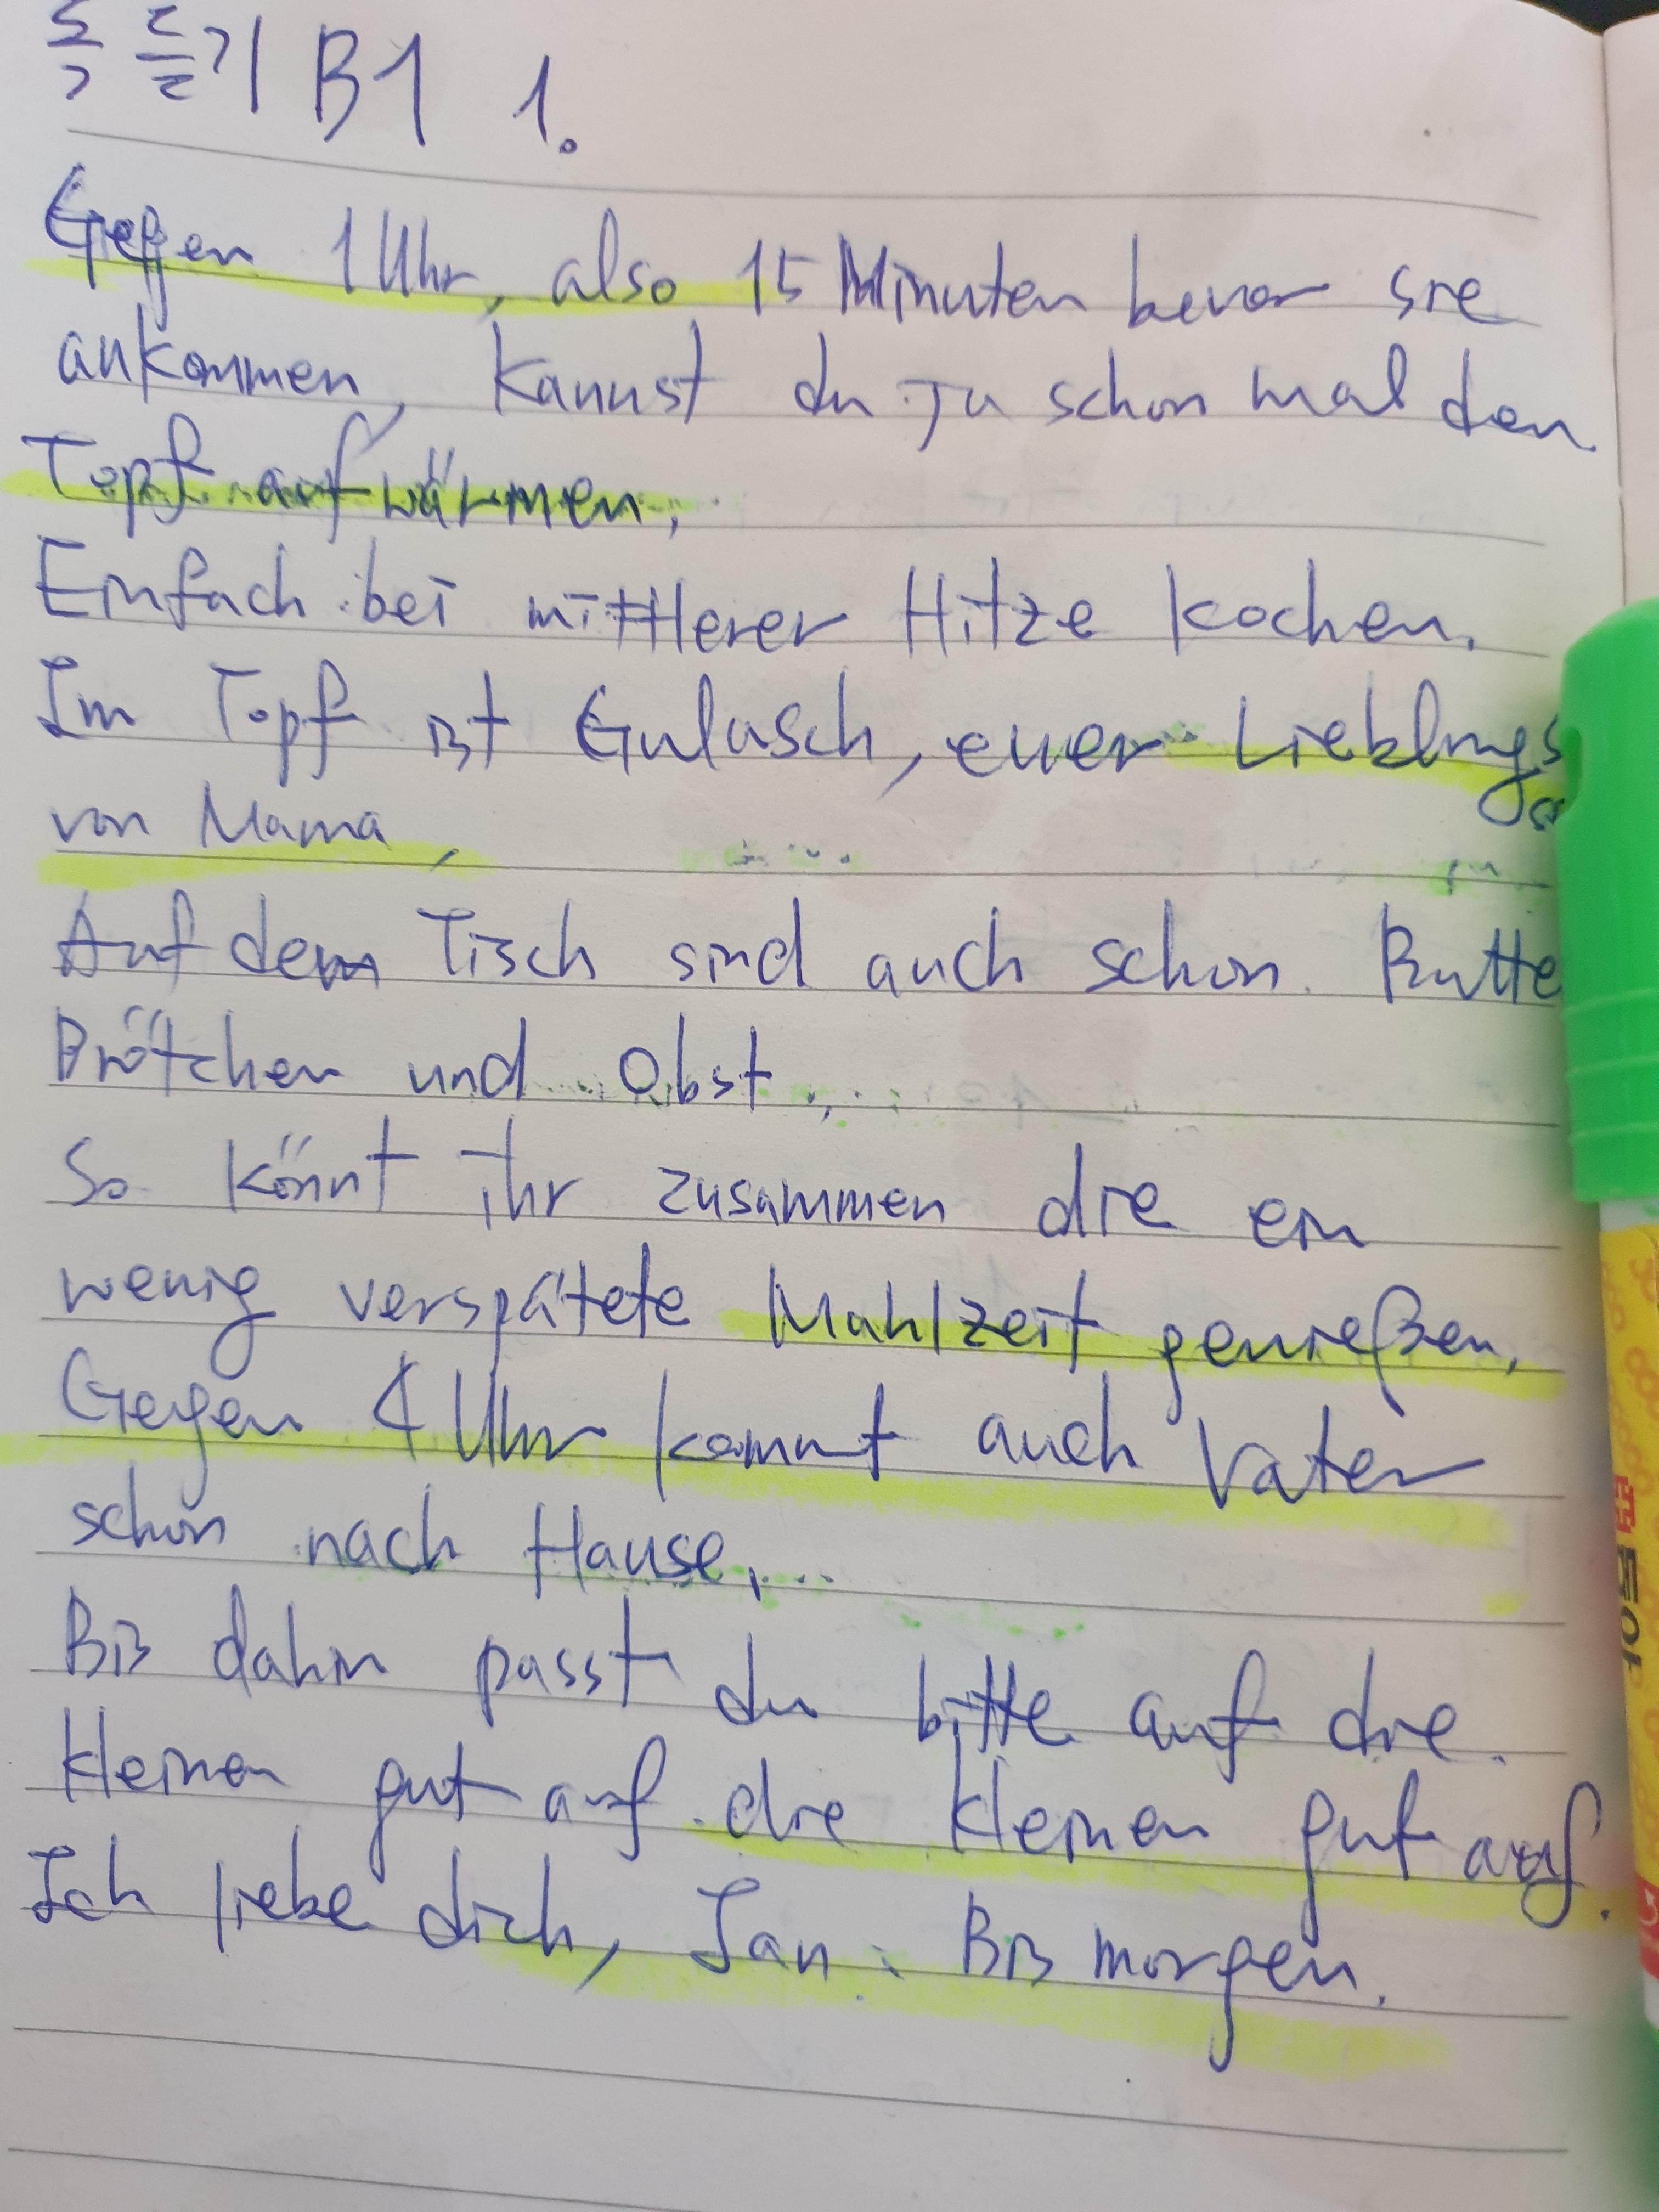 독 듣기 B1 1.
Gegen 1 Uhr, also 15 Minuten bevor sie
ankommen, kannst du ja schon mal den
Topf aufwärmen.
Einfach bei mittlerer Hitze kochen.
Im Topf ist Gulasch, euer Lieblings
von Mama,
Auf dem Tisch sind auch schon Butte
Brötchen und Obst.
So könnt ihr zusammen die ein
wenig verspätete Mahlzeit genießen.
Gegen 4 Uhr kommt auch Vater
schon nach Hause.
Bis dahin passt du bitte auf die
kleinen gut auf die kleinen gut auf.
Ich liebe dich, Jan. Bis morgen.